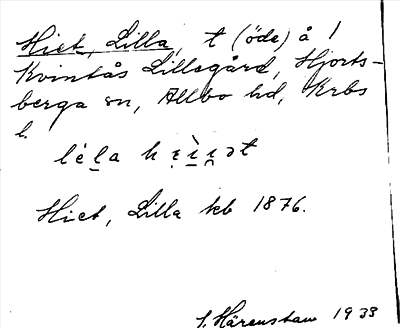 Hiet, Lilla, t (öde) å 1
Kvintås Lillegård, Hjorts-
berga sn, Allbo hd, Krbs
l.
léla hẹìı̯ət
Hiet, Lilla kb 1876.
S. Hårenstam 1933